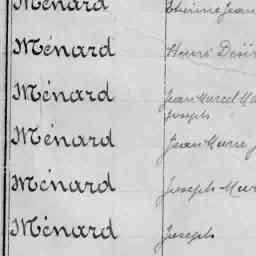 Ménard Etienne Jean
Ménard Henri Désir
Ménard Jean Marcel Ma
Joseph
Ménard Jean Marie J
Ménard Joseph Mar
Ménard Joseph